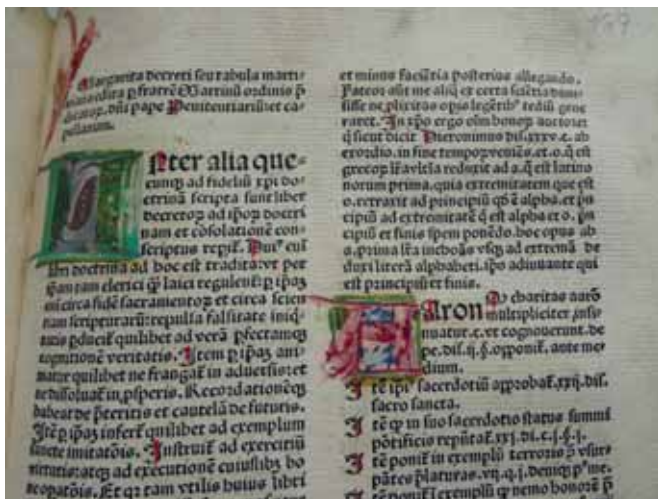 Margarita decreti seu tabula marti-
niana edita ꝑ fratrē Martinū ordinis p̄
dicatoꝝ. dn̄i pape Penitentiariū et ca-
pellanum.
Inter alia que-
cunqꝫ ad fideliū xp̄i do-
ctrinā scripta sunt liber
decretoꝝ ad ip̄oꝝ doctri
nam et cōsolationē con-
scriptus
doctrina ad hoc est tradita: vt per
ip̄am tam clerici qꝫ laici regulent̄: ꝑ ip̄aꝫ
circa fidē sacramentoꝝ et circa scien
tiam scripturarū: repulsa falsitate iniqͥ-
tatis ꝑducit̄ quilibet ad verā ꝑfectamqꝫ
cognitionē veritatis. Item ꝑ ip̄aꝫ ani-
matur quilibet ne frangat̄ in aduersis: et
ne dissoluat̄ in ꝓsperis. Recordationēqꝫ
habeat de p̄teritis et cautelā de futuris.
Itē ꝑ ip̄aꝫ infert̄ quilibet ad exemplum
sancte imitatōis. Instruit̄ ad exercitiū
virtutis: atqꝫ ad executionē cuiuslibꝫ bo
Et qꝛ tam vtilis huius libri
169
et minus sciētia posterius allegando.
Pateor aūt me aliq̄ ex certa sciētia
ne plicitas opis legētibꝰ tediū gene
raret. In xp̄o ergo oīm bonoꝝ auctore:
q̄ sicut dicit Hieronimus dis. xxxv. c. ab
exordio. in fine tempoꝝ veniēs. et. o. q̄ est
grecoꝝ lr̄a vlt̄ia reduxit ad a. q̄ est latino
norum prima. quia extremitatem que est
o. retraxit ad principiū qd̄ ē alpha. et prī
cipiū ad extremitatē q̄ est alpha et o. prī
cipiū et finis spem ponēdo. hoc opus ab
a. prima lr̄a inchoās vsqꝫ ad extremā de
duxi literā alphabeti. ip̄o adiuuante qui
est principiū et finis.
Aaron charitas aarō
multipliciter insi
nuatur. c. et cognouerunt. de
pe. dis. ij. §. opponit̄. ante me
dium.
Itē ip̄iꝰ sacerdotiū approbat̄. xxij. dis.
sacro sancta.
Itē ꝙ in suo sacerdotio status summi
pōtificis reputat̄. xxj. di. c. j. §. j.
Itē ponit̄ in exemplū terroris
p̄laturas. vij. q. j. deniqꝫ
Itē ponit̄ in exemplū ꝙ nemo honorē